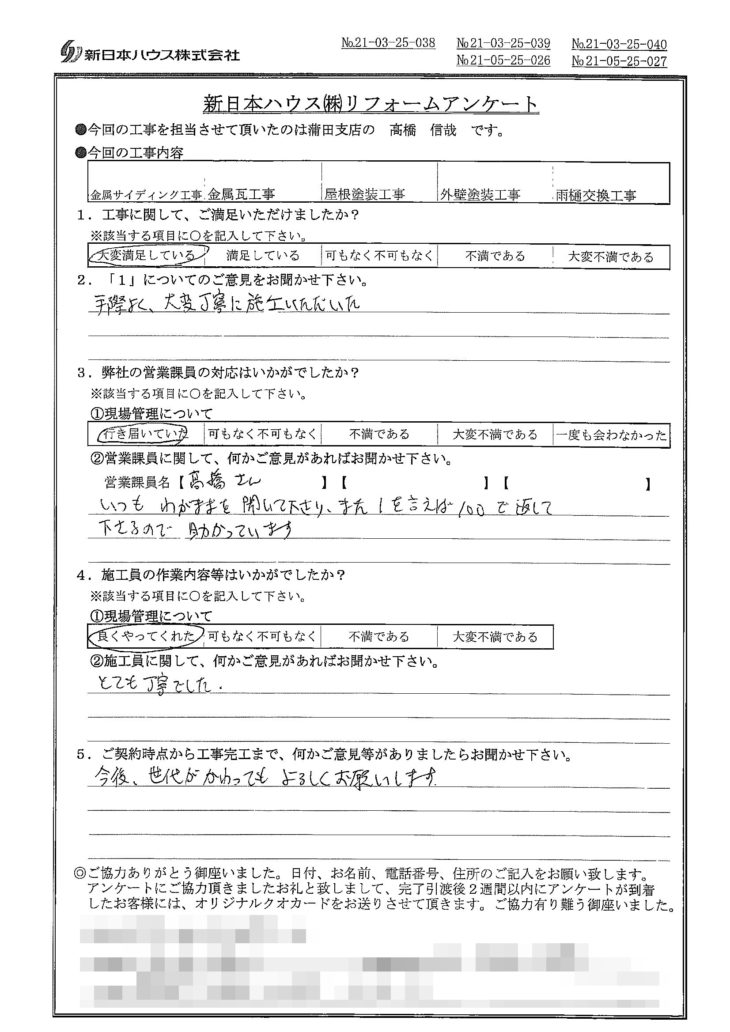 新日本ハウス株式会社
№21-03-25-038 №21-03-25-039 №21-03-25-040
№21-05-25-026 №21-05-25-027
新日本ハウス㈱リフォームアンケート
●今回の工事を担当させて頂いたのは蒲田支店の 高橋 信哉 です。
●今回の工事内容
金属サイディング工事 金属瓦工事 屋根塗装工事 外壁塗装工事 雨樋交換工事
1．工事に関して、ご満足いただけましたか？
※該当する項目に○を記入して下さい。
大変満足している 満足している 可もなく不可もなく 不満である 大変不満である
2．「1」についてのご意見をお聞かせ下さい。
手際よく、大変丁寧に施工いただいた
3．弊社の営業課員の対応はいかがでしたか？
※該当する項目に○を記入して下さい。
①現場管理について
行き届いていた 可もなく不可もなく 不満である 大変不満である 一度も会わなかった
②営業課員に関して、何かご意見があればお聞かせ下さい。
営業課員名【高橋さん 】【 】【 】
いつも わがままを聞いて下さり、また1を言えば100で返して
下さるので助かっています
4．施工員の作業内容等はいかがでしたか？
※該当する項目に○を記入して下さい。
①現場管理について
良くやってくれた 可もなく不可もなく 不満である 大変不満である
②施工員に関して、何かご意見があればお聞かせ下さい。
とても丁寧でした.
5．ご契約時点から工事完工まで、何かご意見等がありましたらお聞かせ下さい。
今後、世代がかわってもよろしくお願いします
◎ご協力ありがとう御座いました。日付、お名前、電話番号、住所のご記入をお願い致します。
アンケートにご協力頂きましたお礼と致しまして、完了引渡後2週間以内にアンケートが到着
したお客様には、オリジナルクオカードをお送りさせて頂きます。ご協力有り難う御座いました。